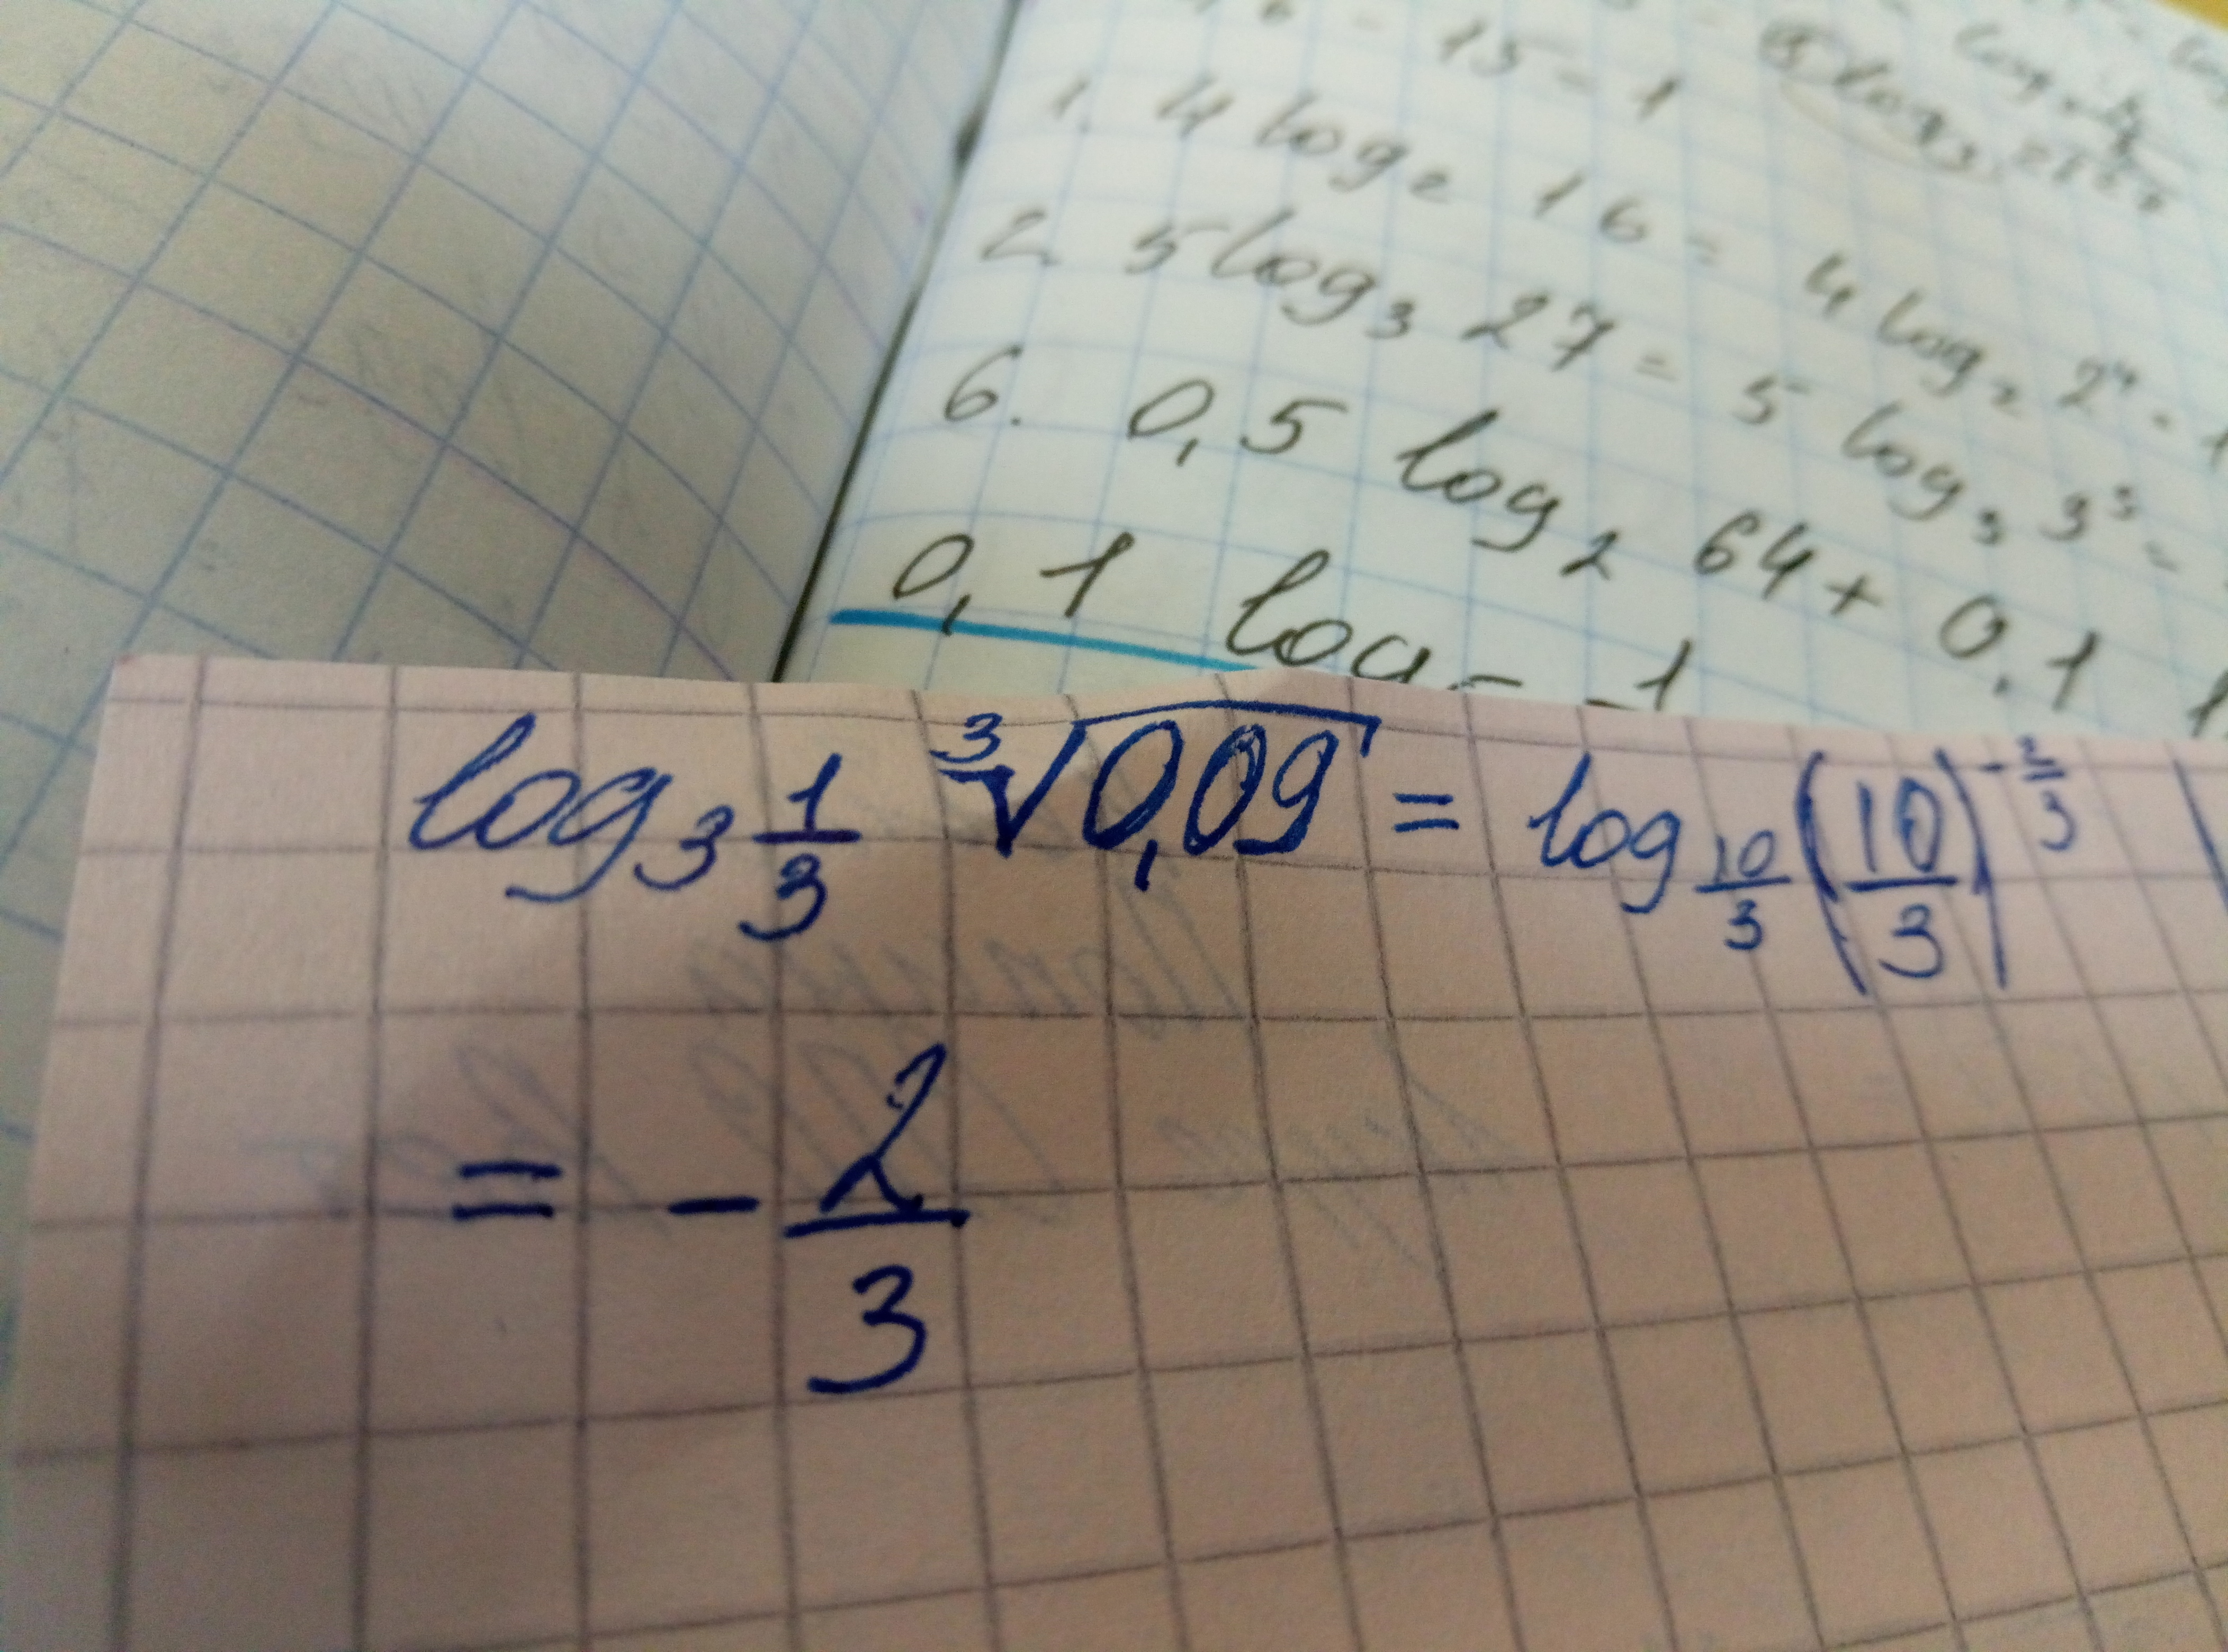 15 = 1
1. 4 log₂ 16 = 4 log₂ 2⁴ = 1
2. 5 log₃ 27 = 5 log₃ 3³ =
6. 0,5 log₂ 64 + 0,1
0,1 log
log₃ 1/3 ∛0,09 = log 10/3 (10/3)^-2/3
= - 2/3